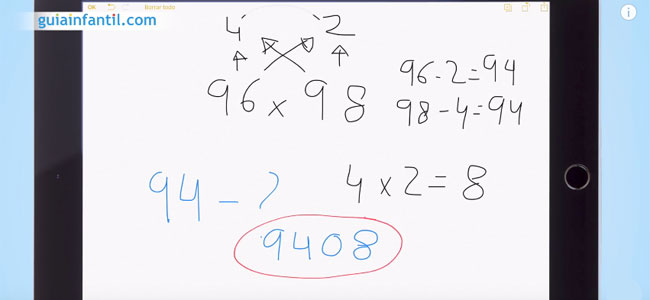 guiainfantil.com
OK Borrar todo
4 2
96 x 98
96-2=94
98-4=94
94-? 4x2=8
9408